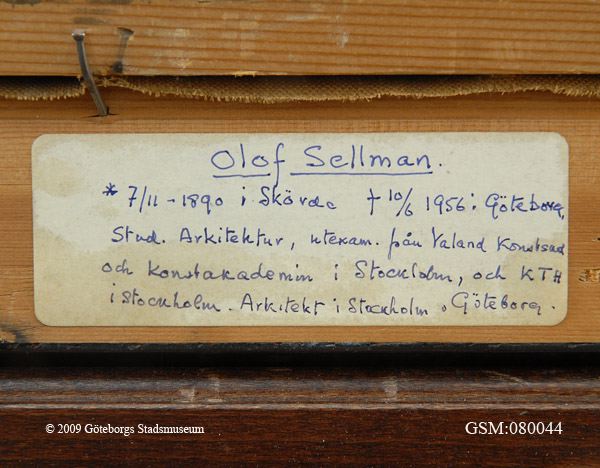 Olof Sellman.
* 7/11 - 1890 i Skövde † 10/6 1956 i Göteborg.
Stud. Arkitektur, utexam. från Valand Konstsad
och Konstakademin i Stockholm, och KTH
i Stockholm. Arkitekt i Stockholm, Göteborg.
© 2009 Göteborgs Stadsmuseum
GSM:080044